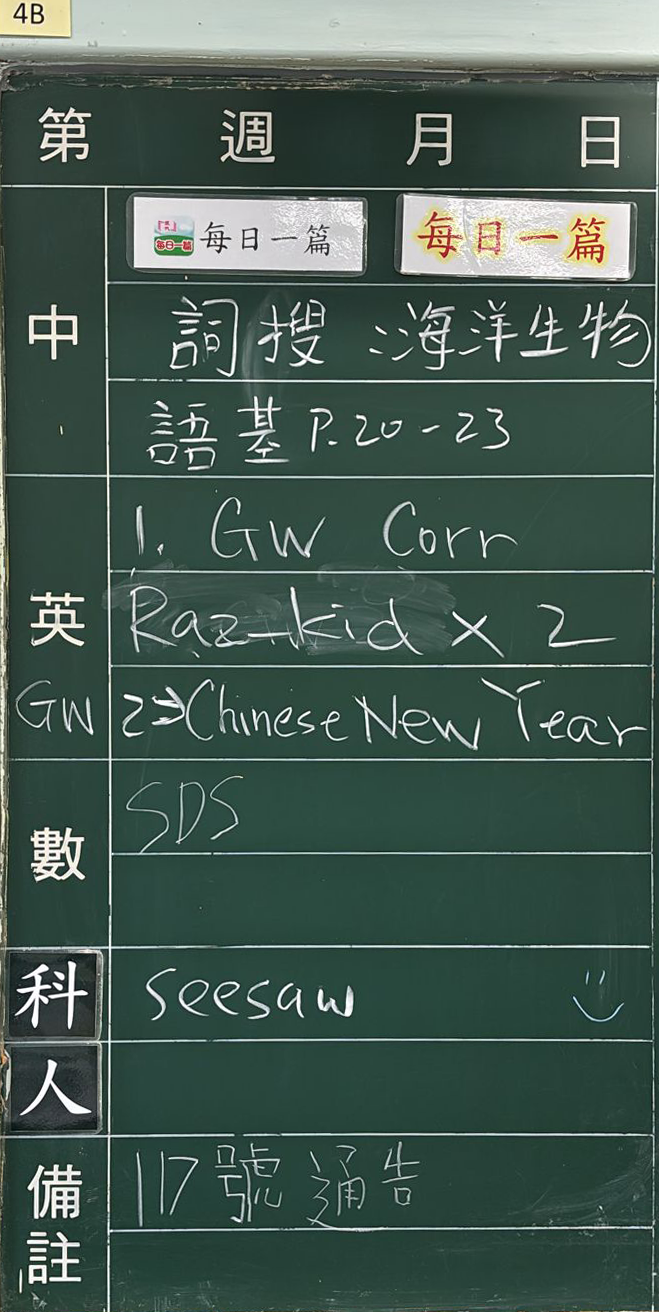 4B
第 週 月 日
每日一篇 每日一篇 每日一篇
中
詞搜:海洋生物
語基 P.20-23
1. GW Corr
英 Raz-kid x 2
GW 2→Chinese New Year
數 SDS
科 seesaw
人
備註 117號通告